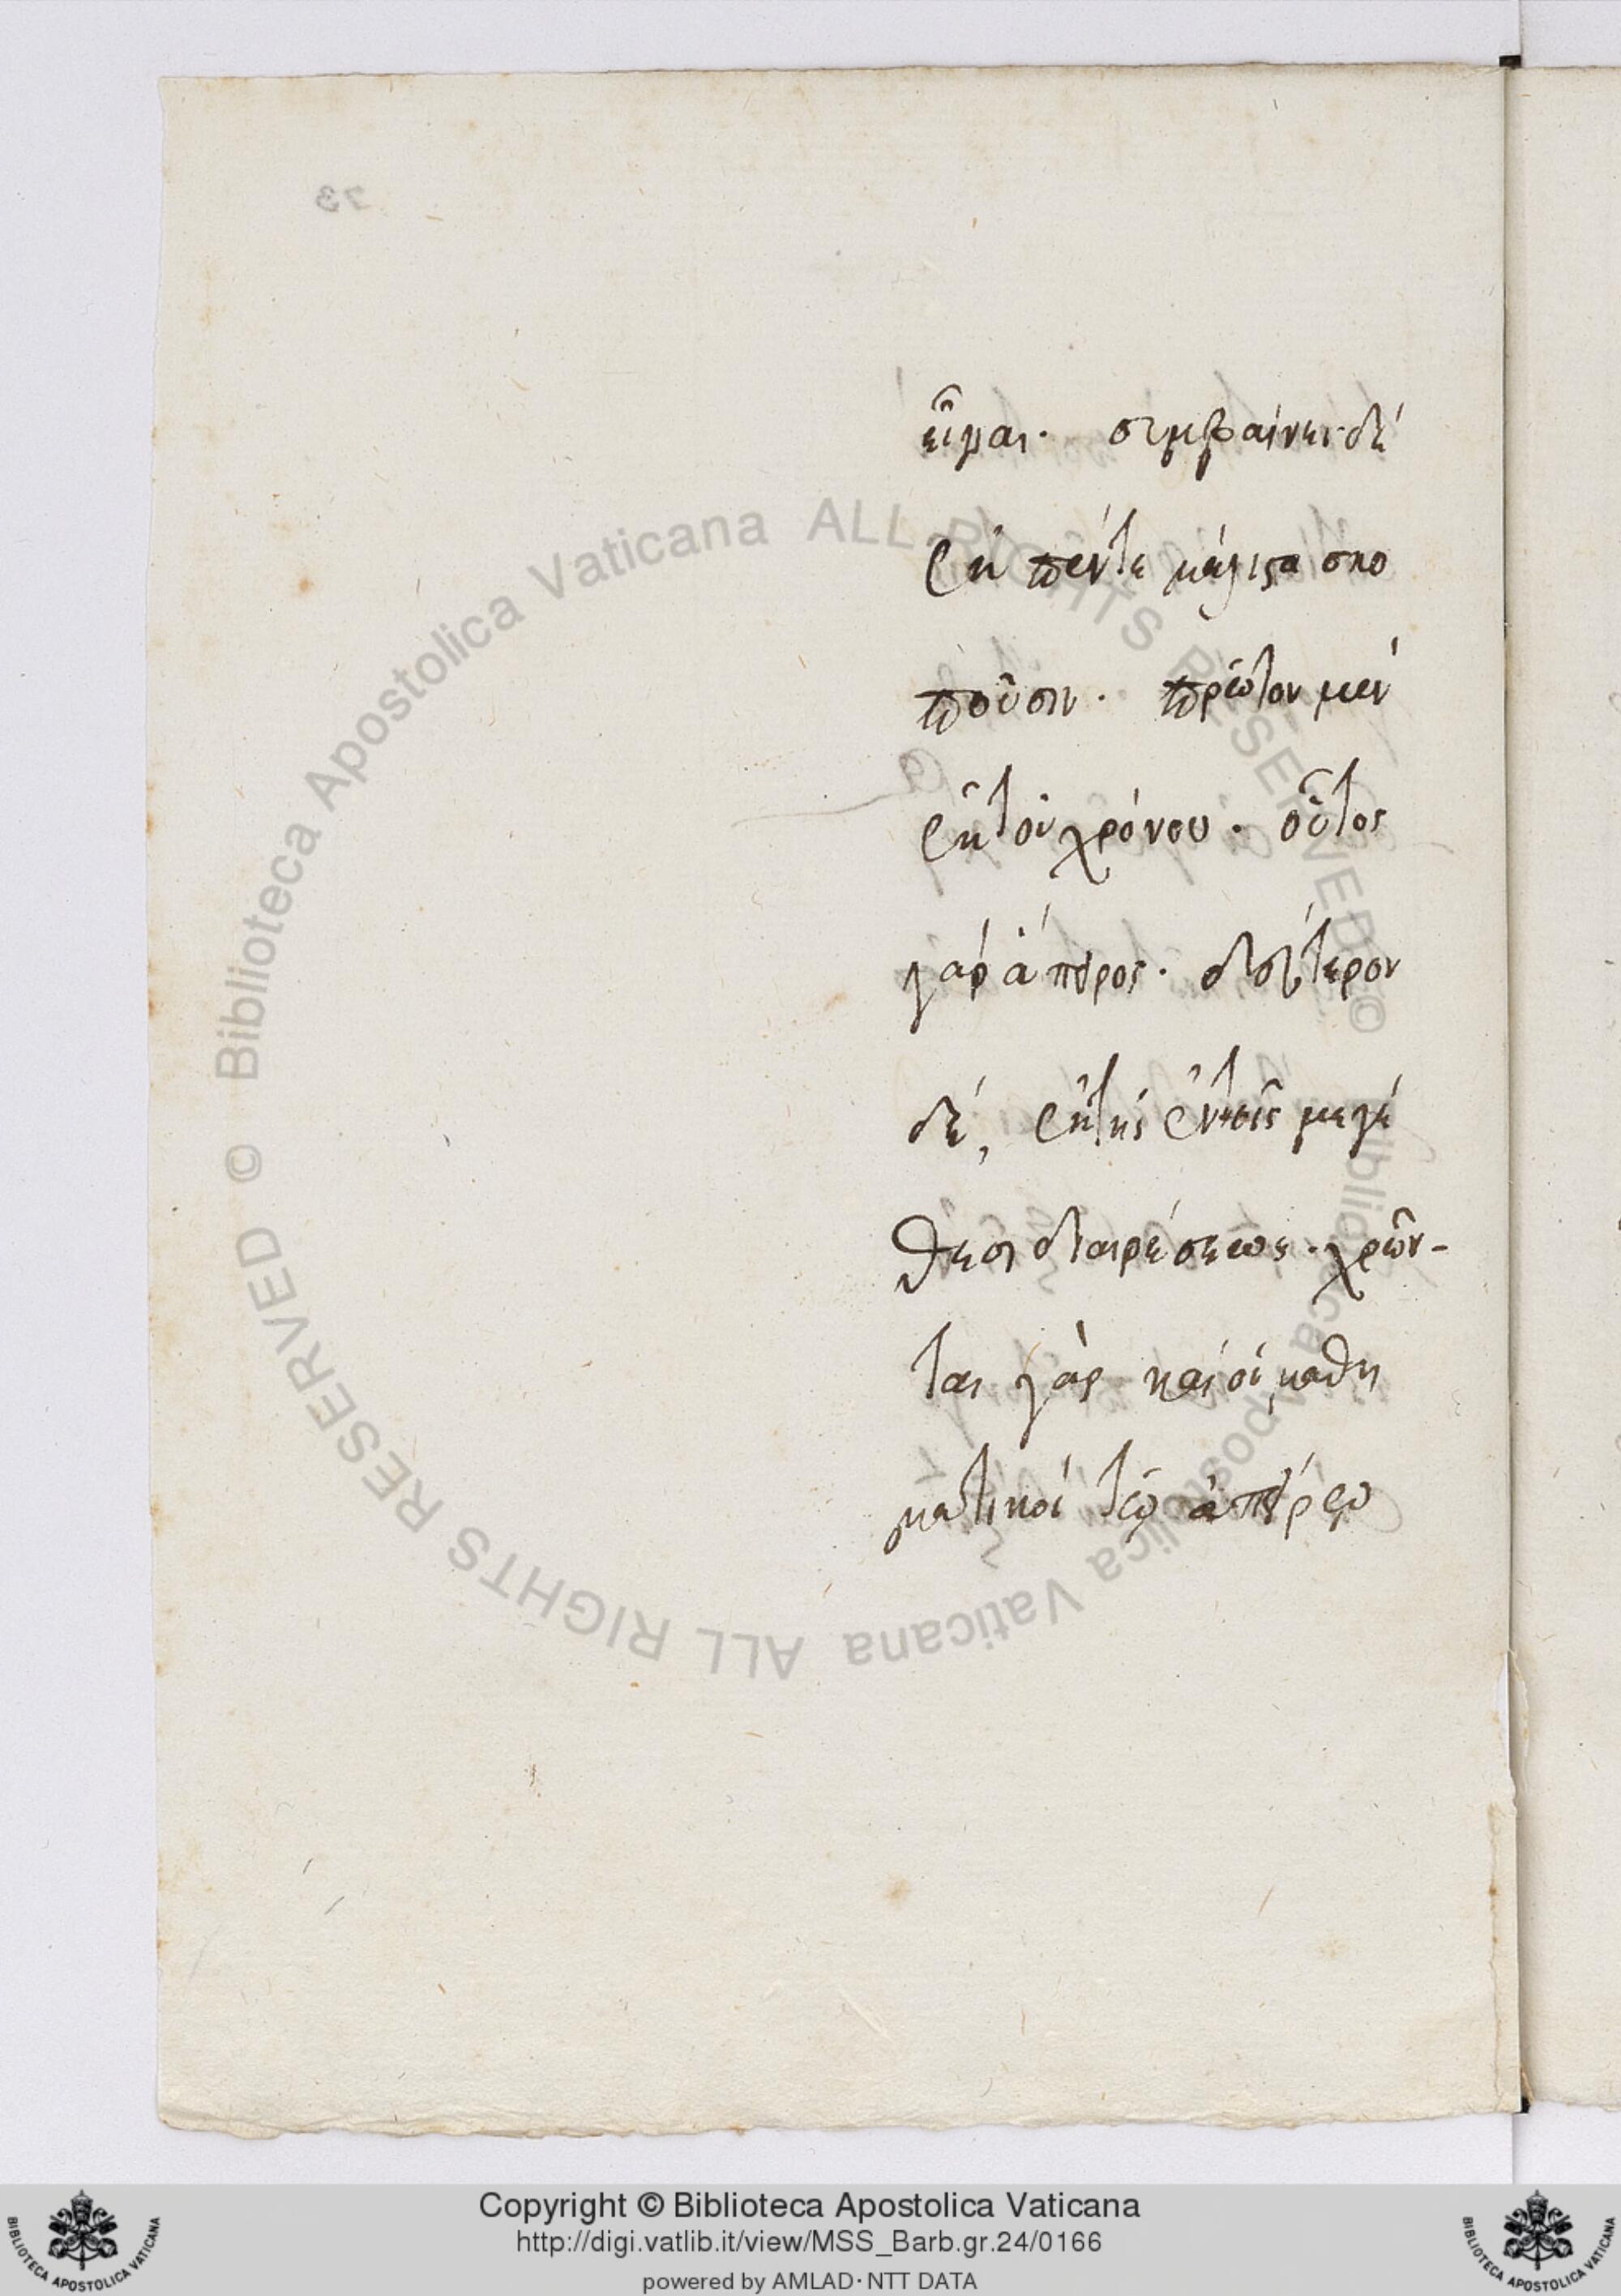 εἶναι· συμβαίνει δέ
ἐκ πέντε μάλιστα σκο
ποῦσιν· πρῶτον μέν
ἔκ τοῦ χρόνου· οὗτος
γάρ ἄπειρος· δεύτερον
δέ, ἐκ τῆς ἐν τοῖς μεγέ
θεσι διαιρέσεως· χρῶν-
ται γὰρ καὶ οἱ μαθη
ματικοί τῷ ἀπείρῳ
73
© Biblioteca Apostolica Vaticana ALL RIGHTS RESERVED
© Biblioteca Apostolica Vaticana ALL RIGHTS RESERVED
Copyright © Biblioteca Apostolica Vaticana
http://digi.vatlib.it/view/MSS_Barb.gr.24/0166
powered by AMLAD·NTT DATA
BIBLIOTECA APOSTOLICA VATICANA
BIBLIOTECA APOSTOLICA VATICANA